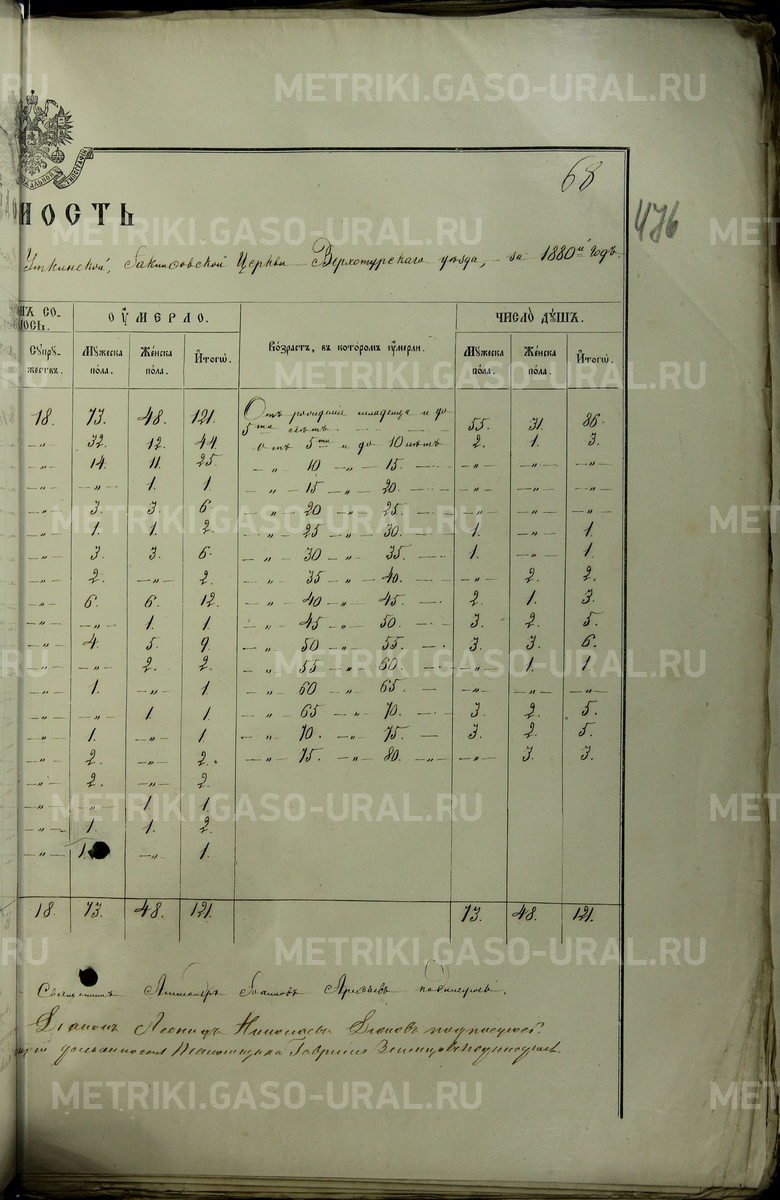 METRIKI.GASO-URAL.RU
68
476
НОСТЬ
Уткинской, Іакинѳовской Церкви Верхотурскаго уѣзда, за 1880й годъ.
МЪ СО-
НОСЬ.
ОУМЕРЛО.
ЧИСЛО ДУШЪ.
Супру-
жествъ.
Мужеска
пола.
Женска
пола.
Итого.
Возрастъ, въ которомъ умерли.
Мужеска
пола.
Женска
пола.
Итого.
18. 73. 48. 121. Отъ рожденія младенца и до
5ти лѣтъ. 55. 31. 86.
—„— 32. 12. 44. отъ 5ти и до 10 лѣтъ 2. 1. 3.
—„— 14. 11. 25. —„— 10 —„— 15. —„— —„— —„—
—„— —„— 1. 1. —„— 15 —„— 20. —„— —„— —„—
—„— 3. 3. 6. —„— 20 —„— 25. —„— —„— —„—
—„— 1. 1. 2. —„— 25 —„— 30. 1. —„— 1.
—„— 3. 3. 6. —„— 30 —„— 35. 1. —„— 1.
—„— 2. —„— 2. —„— 35 —„— 40. —„— 2. 2.
—„— 6. 6. 12. —„— 40 —„— 45. 2. 1. 3.
—„— —„— 1. 1. —„— 45 —„— 50. 3. 2. 5.
—„— 4. 5. 9. —„— 50 —„— 55. 3. 3. 6.
—„— —„— 2. 2. —„— 55 —„— 60. —„— 1. 1.
—„— 1. —„— 1. —„— 60 —„— 65. —„— —„— —„—
—„— —„— 1. 1. —„— 65 —„— 70. 3. 2. 5.
—„— 1. —„— 1. —„— 70. —„— 75. 3. 2. 5.
—„— 2. —„— 2. —„— 75. —„— 80. —„— —„— 3. 3.
—„— 2. —„— 2.
—„— „— 1. 1.
—„— 1. 1. 2.
—„— 1. —„— 1.
18. 73. 48. 121. 73. 48. 121.
Священникъ Іоаннъ
Діаконъ Леонидъ Николаевъ Діаковъ подписуюсь.
должности Псаломщика Гавриилъ подписуюсь.